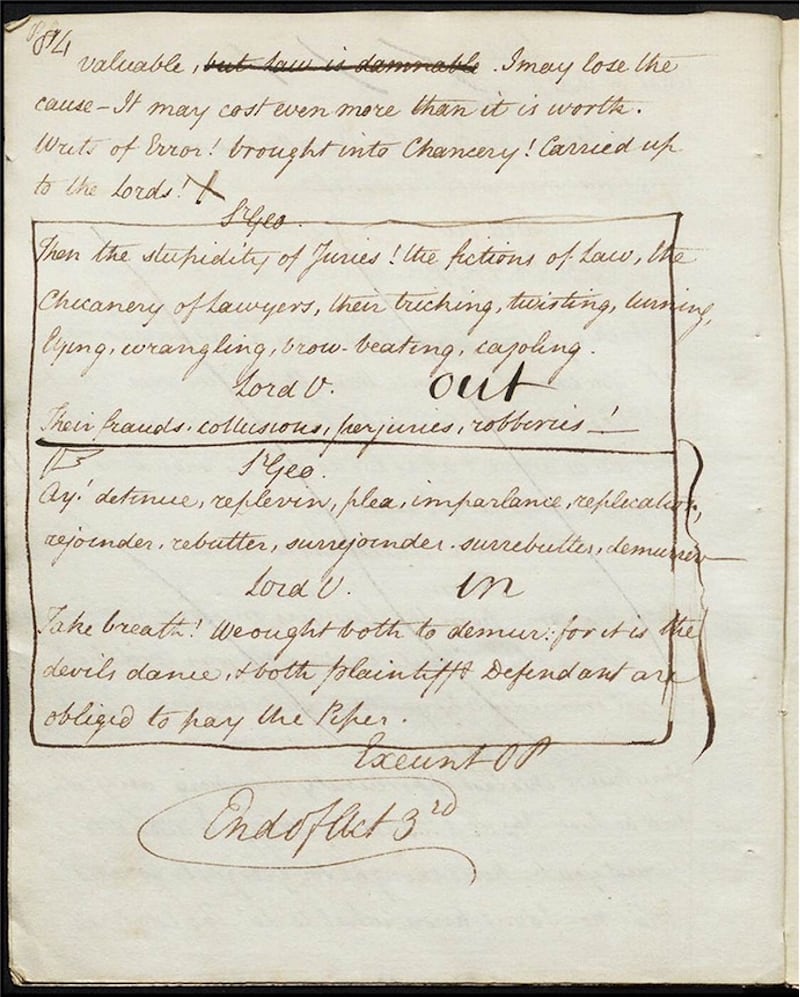 84
valuable, but Law is damnable. I may lose the
cause – It may cost even more than it is worth.
Writs of Error! brought into Chancery! Carried up
to the Lords!
Sr Geo.
Then the stupidity of Juries! the fictions of Law, the
Chicanery of Lawyers, their tricking, twisting, turning,
lying, wrangling, brow-beating, cajoling.
Lord V. out
Their frauds. collusions, perjuries, robberies –!
Sr Geo.
Ay! detinue, replevin, plea, imparlance, replication,
rejoinder, rebutter, surrejoinder. surrebutter, demurrer—
Lord V. in
Take breath! We ought both to demur: for it is the
devils dance, & both plaintiff & Defendant are
obliged to pay the Piper.
Exeunt OP
End of Act 3rd